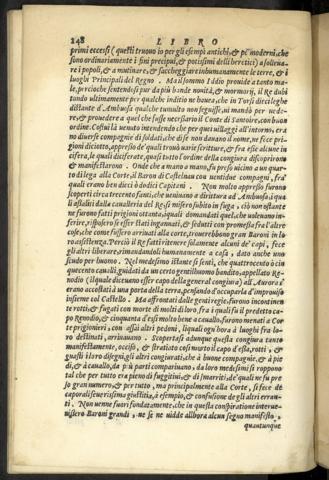 248 LIBRO
primi eccessi (questi truouo io per gli esempi antichi, & pe' moderni, che
sono ordinariamente i fini precipui, & potissimi delli heretici) a solleua-
re i popoli, & a mutinare, & saccheggiare inhumanamente le terre, & i
luoghi Principali del Regno. Ma il sommo Iddio prouide a tanto ma-
le, percioche sentendosi pur da più bande nouità, & mormorij, il Re dubi
tando ultimamente per qualche inditio ne haueua, che in Torsi dieci leghe
distante d'Ambuosa qualche tumulto non seguisse, ui mandò per uede-
re, & prouedere a quel che fusse necessario il Conte di Santoire, con buon
ordine. Costui là uenuto intendendo che per quei uillaggi all'intorno, era
no diuerse compagnie di soldati, che di se non dauano il nome, ne fece pri-
gioni diciotto, appresso de' quali trouò uarie scritture, & fra esse alcune in
cifera, le quali diciferate, quasi tutto l'ordine della congiura discoprirono
& manifestarono. Onde che a mano a mano, fu preso uicino a un quar-
to di lega alla Corte, il Baron di Castelnau con uentidue compagni, fra'
quali erano ben dieci o dodici Capitani. Non molto appresso furono
scoperti circa trecento fanti, che ueniuano a dirittura ad Ambuosa, i qua
li assaliti dalla caualleria del Re, si misero subito in fuga, ciò non ostante
ne furono fatti prigioni ottanta, i quali domandati quel, che uolessino in-
ferire, risposero se esser stati ingannati, & sedutti con promessa fra l'altre
cose, che come fussero arriuati alla corte, trouerebbono gran Baroni in lo-
ro assistenza. Perciò il Re fatti ritenere solamente alcuni de' capi, fece
gli altri liberare, rimandandoli humanamente a casa, dato anche uno
scudo per huomo. Nel medesimo istante si sentì, che quattrocento ò cin
quecento caualli, guidati da un certo gentilhuomo bandito, appellato Re-
nodio (il quale diceuano esser capo della general congiura) all'Aurora s'
erano accostati à una porta della terra, pensando d'occuparla d'improuiso
insieme col Castello. Ma affrontati dalle genti regie, furono incontinen
te rotti, & fugati con morte di molti di loro, fra i quali fu il predetto ca-
po Renodio, & cinquanta d'essi molto bene a cauallo, furono menati a Cor
te prigionieri, con assai altri pedoni, li quali ogn'hora à luoghi fra lo-
ro destinati, arriuauano. Scopertasi adunque questa congiura tanto
manifestamente, occisi, & stratiato così morto il capo d'essa, rotti, &
guasti i loro disegni, gli altri congiurati, che à buone compagnie, & à pie
di, & à cauallo, da più parti compariuano, da loro medesimi si roppono
tal che per tutto era pieno di fuggitiui, & di smarriti, de' quali ne fu pre
so gran numero, & per tutto, ma principalmente alla Corte, si fece de
caporali seuerissima giustitia, à esempio, & confusione de gli altri erran-
ti. Non uenne fuori fondatamente, che in questa conspiratione interue-
nissero Baroni grandi, ne se ne uidde allhora alcun segno manifesto,
quantunque